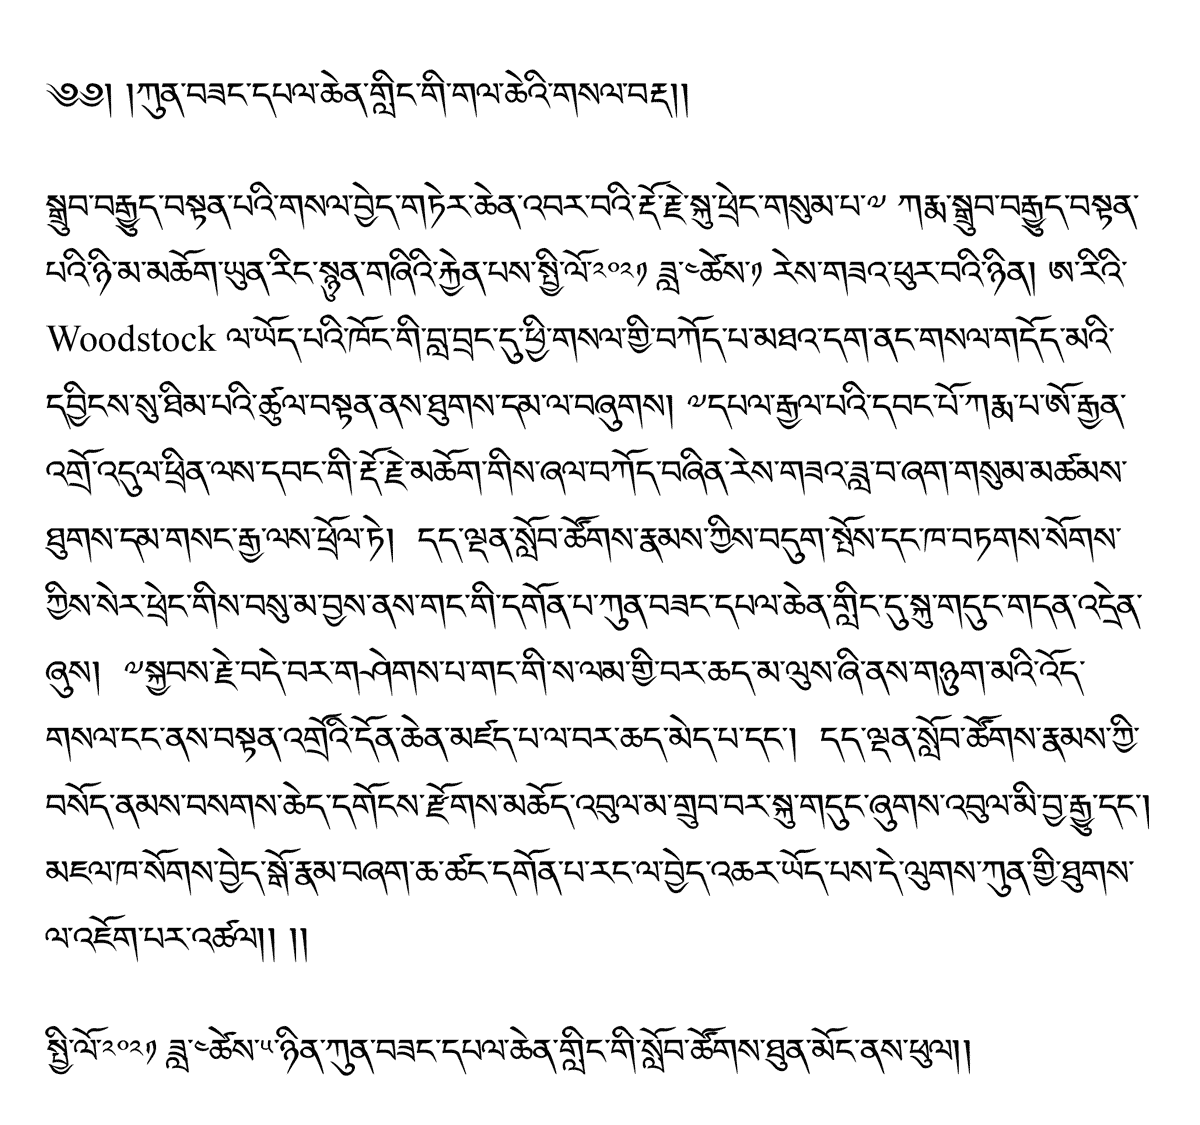 ༄༅། །ཀུན་བཟང་དཔལ་ཆེན་གླིང་གི་གལ་ཆེའི་གསལ་བརྡ།།
སྒྲུབ་བརྒྱུད་བསྟན་པའི་གསལ་བྱེད་གཏེར་ཆེན་འབར་བའི་རྡོ་རྗེ་སྐུ་ཕྲེང་གསུམ་པ་༧ ཀརྨ་སྒྲུབ་བརྒྱུད་བསྟན་
པའི་ཉི་མ་མཆོག་ཡུན་རིང་སྙུན་གཞིའི་རྐྱེན་པས་སྤྱི་ལོ་༢༠༢༡ ཟླ་༤ཚེས་༡ རེས་གཟའ་ཕུར་བའི་ཉིན། ཨ་རིའི་
Woodstock ལ་ཡོད་པའི་ཁོང་གི་བླ་བྲང་དུ་ཕྱི་གསལ་གྱི་བཀོད་པ་མཐའ་དག་ནང་གསལ་གདོད་མའི་
དབྱིངས་སུ་ཐིམ་པའི་ཚུལ་བསྟན་ནས་ཐུགས་དམ་ལ་བཞུགས། ༧དཔལ་རྒྱལ་པའི་དབང་པོ་ཀརྨ་པ་ཨོ་རྒྱན་
འགྲོ་འདུལ་ཕྲིན་ལས་དབང་གི་རྡོ་རྗེ་མཆོག་གིས་ཞལ་བཀོད་བཞིན་རེས་གཟའ་ཟླ་བ་ཞག་གསུམ་མཚམས་
ཐུགས་དམ་གསང་རྒྱ་ལས་ཕྲོལ་ཏེ། དད་ལྡན་སློབ་ཚོོགས་རྣམས་ཀྱིས་བདུག་སྤོས་དང་ཁ་བཏགས་སོགས་
ཀྱིས་སེར་ཕྲེང་གིས་བསུ་མ་བྱས་ནས་གང་གི་དགོན་པ་ཀུན་བཟང་དཔལ་ཆེན་གླིང་དུ་སྐུ་གདུང་གདན་འདྲེན་
ཞུས། ༧སྐྱབས་རྗེ་བདེ་བར་གཤེགས་པ་གང་གི་ས་ལམ་གྱི་བར་ཆད་མ་ལུས་ཞི་ནས་གཉུག་མའི་འོད་
གསལ་ངང་ནས་བསྟན་འགྲོའི་དོན་ཆེན་མཛད་པ་ལ་བར་ཆད་མེད་པ་དང་། དད་ལྡན་སློབ་ཚོོགས་རྣམས་ཀྱི་
བསོད་ནམས་བསགས་ཆེད་དགོངས་རྫོགས་མཆོད་འབུལ་མ་གྲུབ་བར་སྐུ་གདུང་ཞུགས་འབུལ་མི་བྱ་རྒྱུ་དང་།
མཇལ་ཁ་སོགས་བྱེད་སྒོ་རྣམ་བཞག་ཆ་ཚང་དགོན་པ་རང་ལ་བྱེད་འཆར་ཡོད་པས་དེ་ལུགས་ཀུན་གྱི་ཐུགས་
ལ་འཇོག་པར་འཚལ།། །།
སྤྱི་ལོ་༢༠༢༡ ཟླ་༤ཚེས་༥་ཉིན་ཀུན་བཟང་དཔལ་ཆེན་གླིང་གི་སློབ་ཚོོགས་ཐུན་མོང་ནས་ཕུལ།།